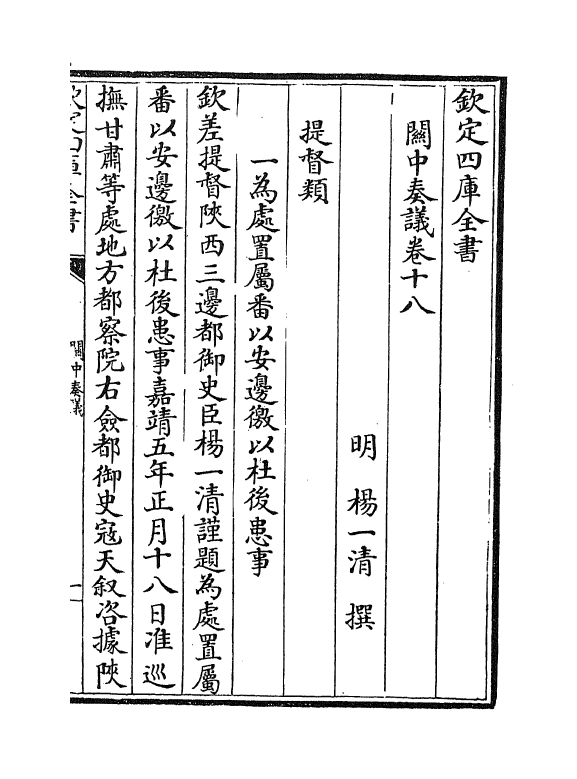 欽定四庫全書
關中奏議卷十八
明 楊一清 撰
提督類
一為處置屬番以安邊徼以杜後患事
欽差提督陜西三邊都御史臣楊一清謹題為處置屬
番以安邊徼以杜後患事嘉靖五年正月十八日准巡
撫甘肅等處地方都察院右僉都御史寇天叙咨據陜
欽定四庫全書
關中奏議
一